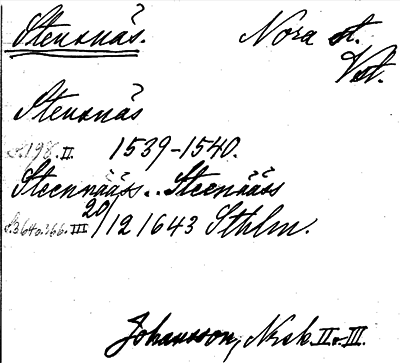 Stensnäs. Nora st.
Vst.
Stensnäs
s. 198. II. 1539-1540.
Steennääss.. Steenääss
III 20/12 1643 Sthlm.
Johansson, Nsk. II o. III.